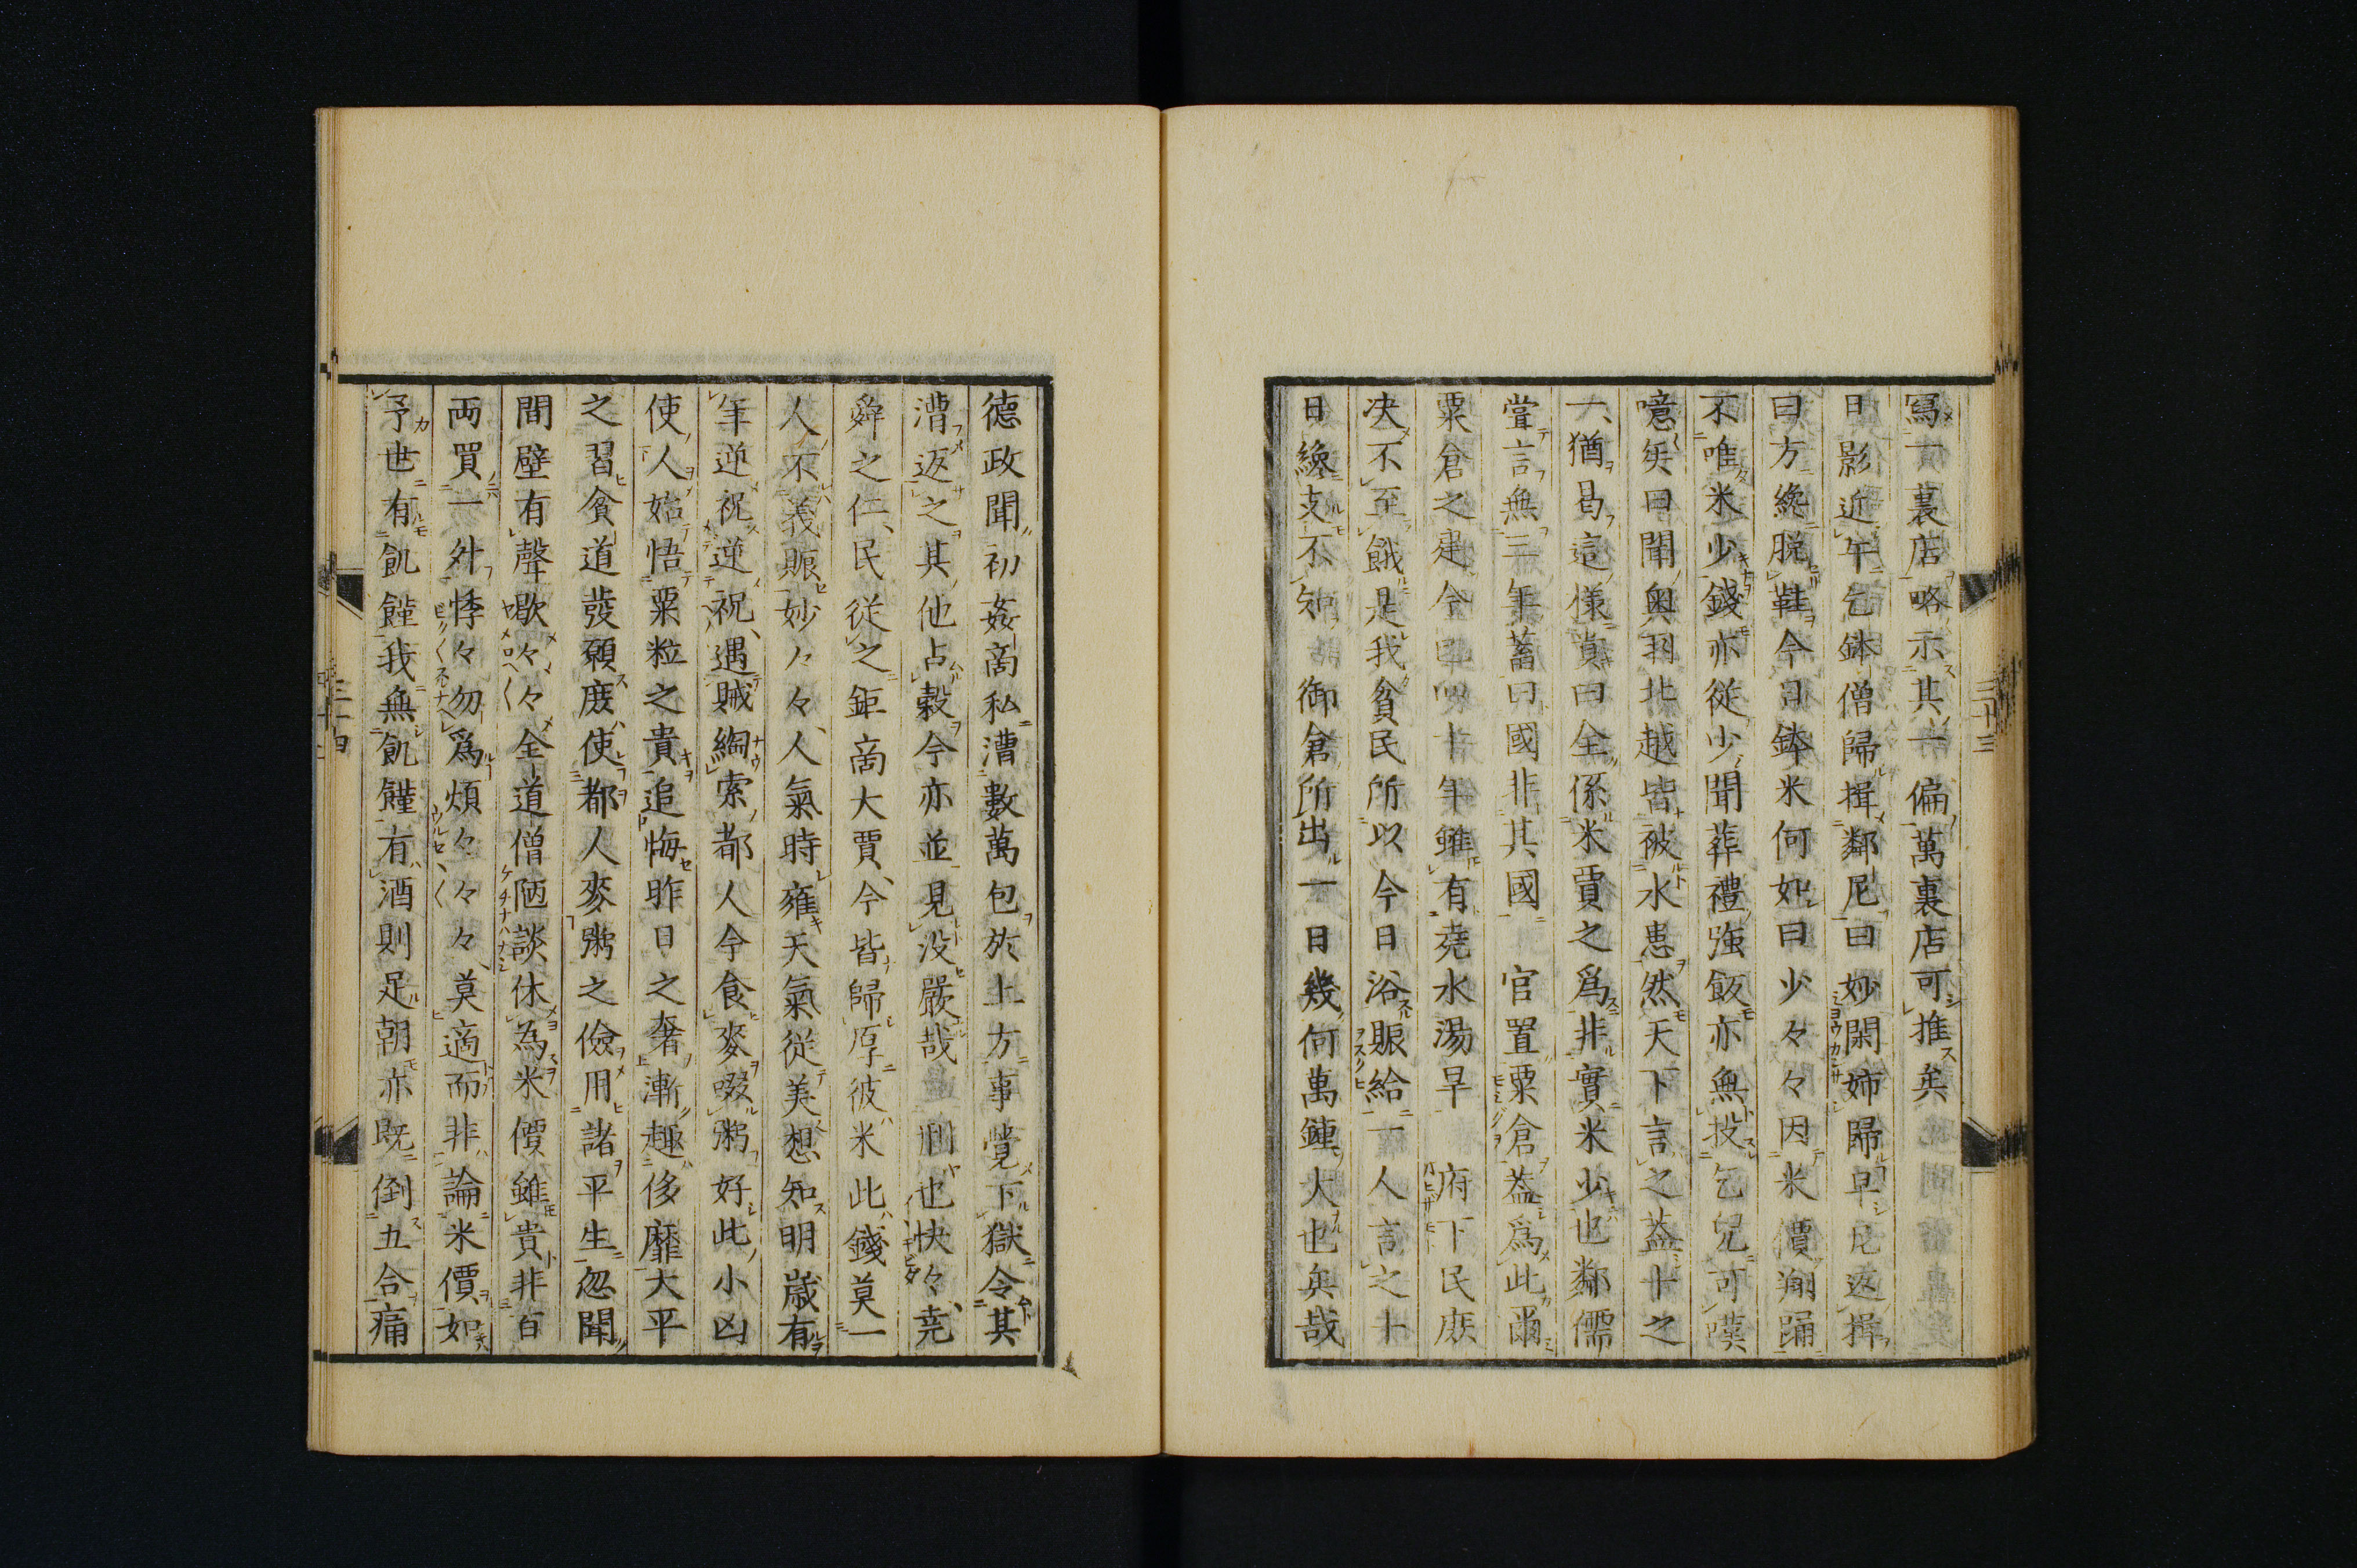 寫一裏店略示其一偏萬裏店可推矣
日影近午乞鉢僧歸揖鄰尼曰妙閑姉歸早尼返揖
曰方纔脱鞋今日鉢米何如曰少々々因米價翔踊
不唯米少錢亦從少聞葬禮強飯亦無投乞兒可嘆
噫矣曰聞奥羽北越皆被水患然天下言之葢十之
一猶曷這樣貴曰全係米賈之爲非實米少也鄰儒
嘗言無三年蓄曰國非其國 官置粟倉葢爲此爾
粟倉之建今已四十年雖有堯水湯旱 府下民庶
决不至餓是我貧民所以今日浴賑給一人言之十
日纔支不知 御倉所出一日幾何萬鍾大也矣哉
德政聞初姦商私漕數萬包於上方事覺下獄令其
漕返之其他占穀今亦並見没嚴哉 制也快々堯
舜之仁民從之鉅商大賈今皆歸厚彼米此錢莫一
人不義賑妙々々人氣時雍天氣從美想知明歳有
年逆祝逆祝遇賊綯索都人今食麥啜粥好此小凶
使人始悟粟粒之貴追悔昨日之奢漸趣侈靡大平
之習貧道發願庶使都人麥粥之儉用諸平生忽聞
間壁有聲歇々々全道僧陋談休為米價雖貴非百
兩買一舛悸々勿爲煩々々々莫適而非論米價如
予世有飢饉我無飢饉有酒則足朝亦既倒五合痛
三十三
三十四